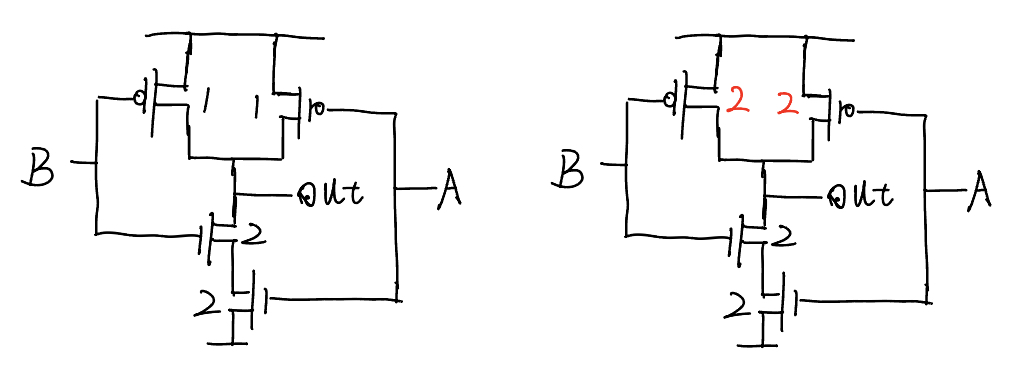 1 1
B
out
A
2
2
2 2
B
out
A
2
2